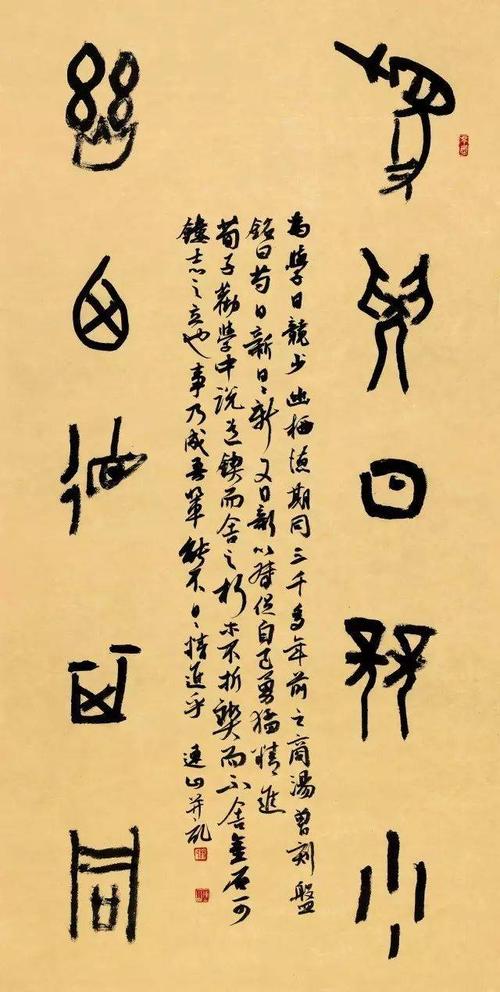 為學日競少
幽栖德期同
為學日競少幽栖德期同三千多年前之商湯曾刻盤
銘曰苟日新日〻新又日新以督促自己勇猛精進
荀子勸學中說道鍥而舍之朽木不折鍥而不舍金石可
鏤志之立也事乃成吾輩能不日〻精進乎 連山并記